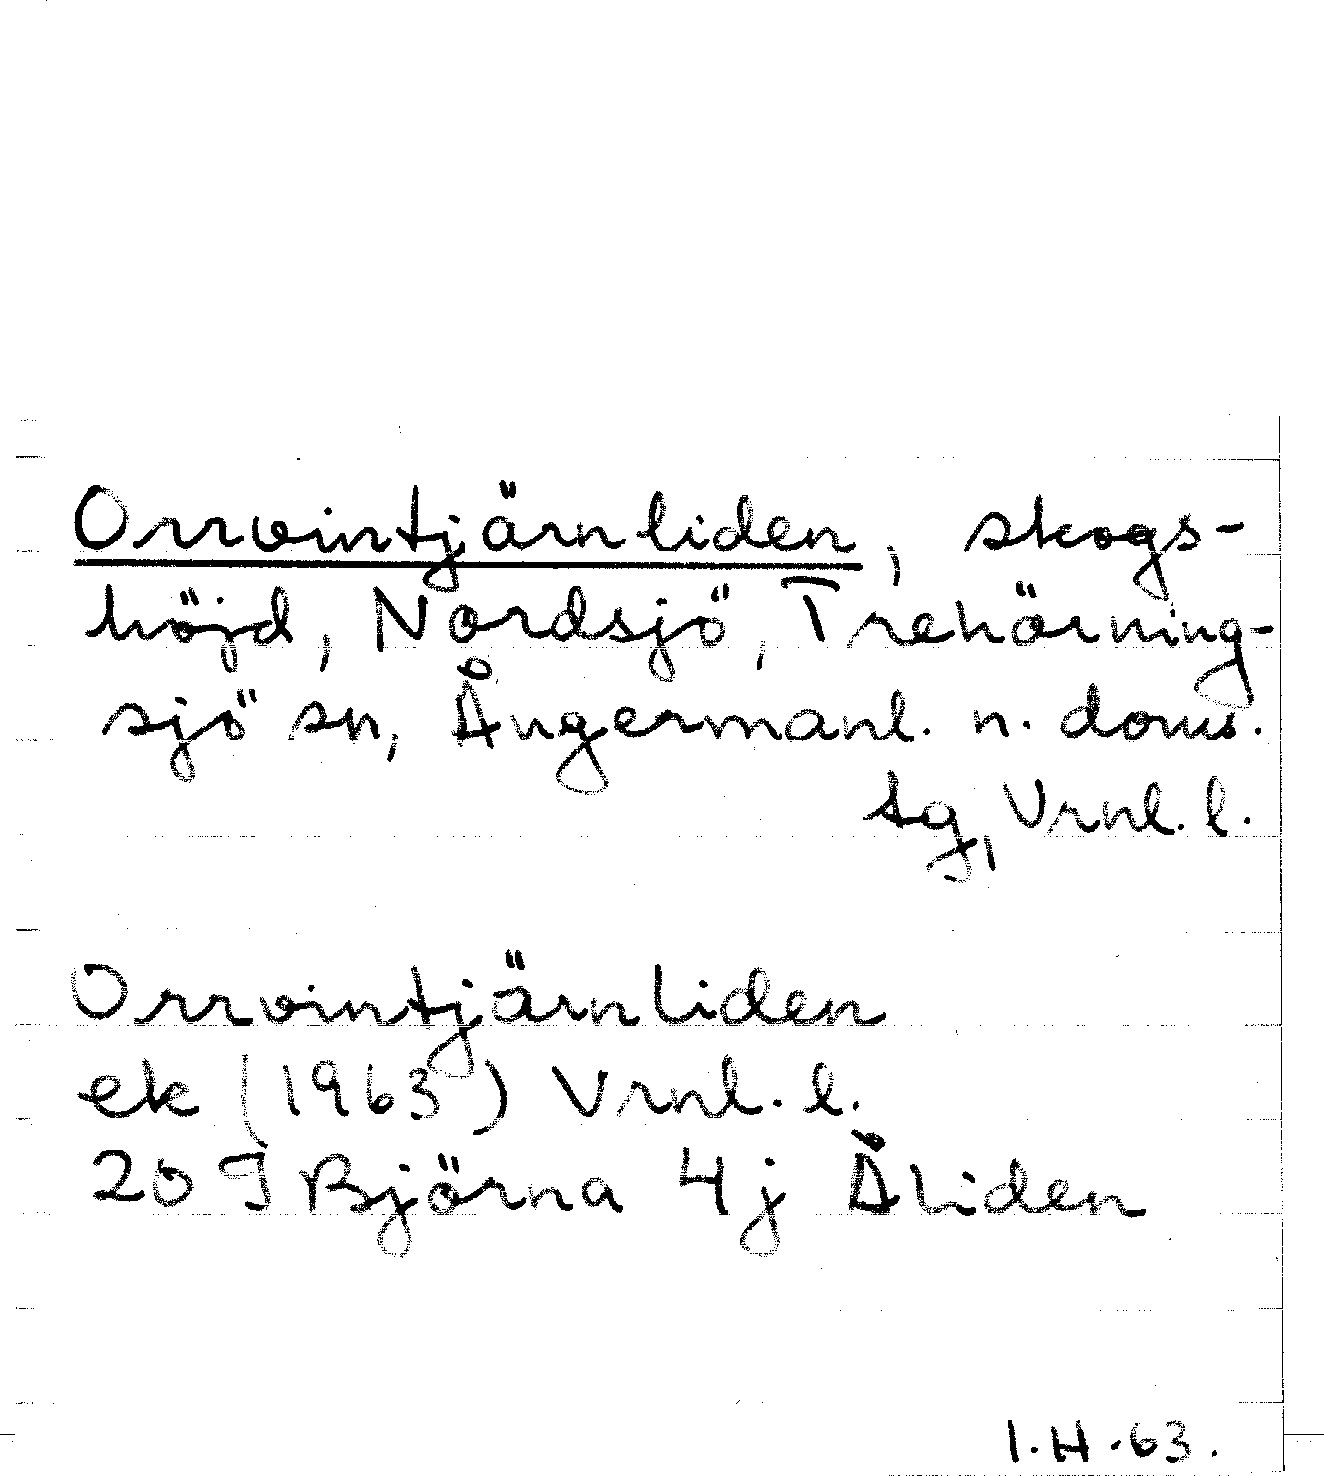 Orrvintjärnliden, skogs-
höjd, Nordsjö, Trehörning-
sjö sn, Ångermanl. n. doms.
tg, Vrnl. l.
Orrvintjärnliden
ek (1963) Vrnl. l.
20 J Björna 4j Åliden
I. H. 63.